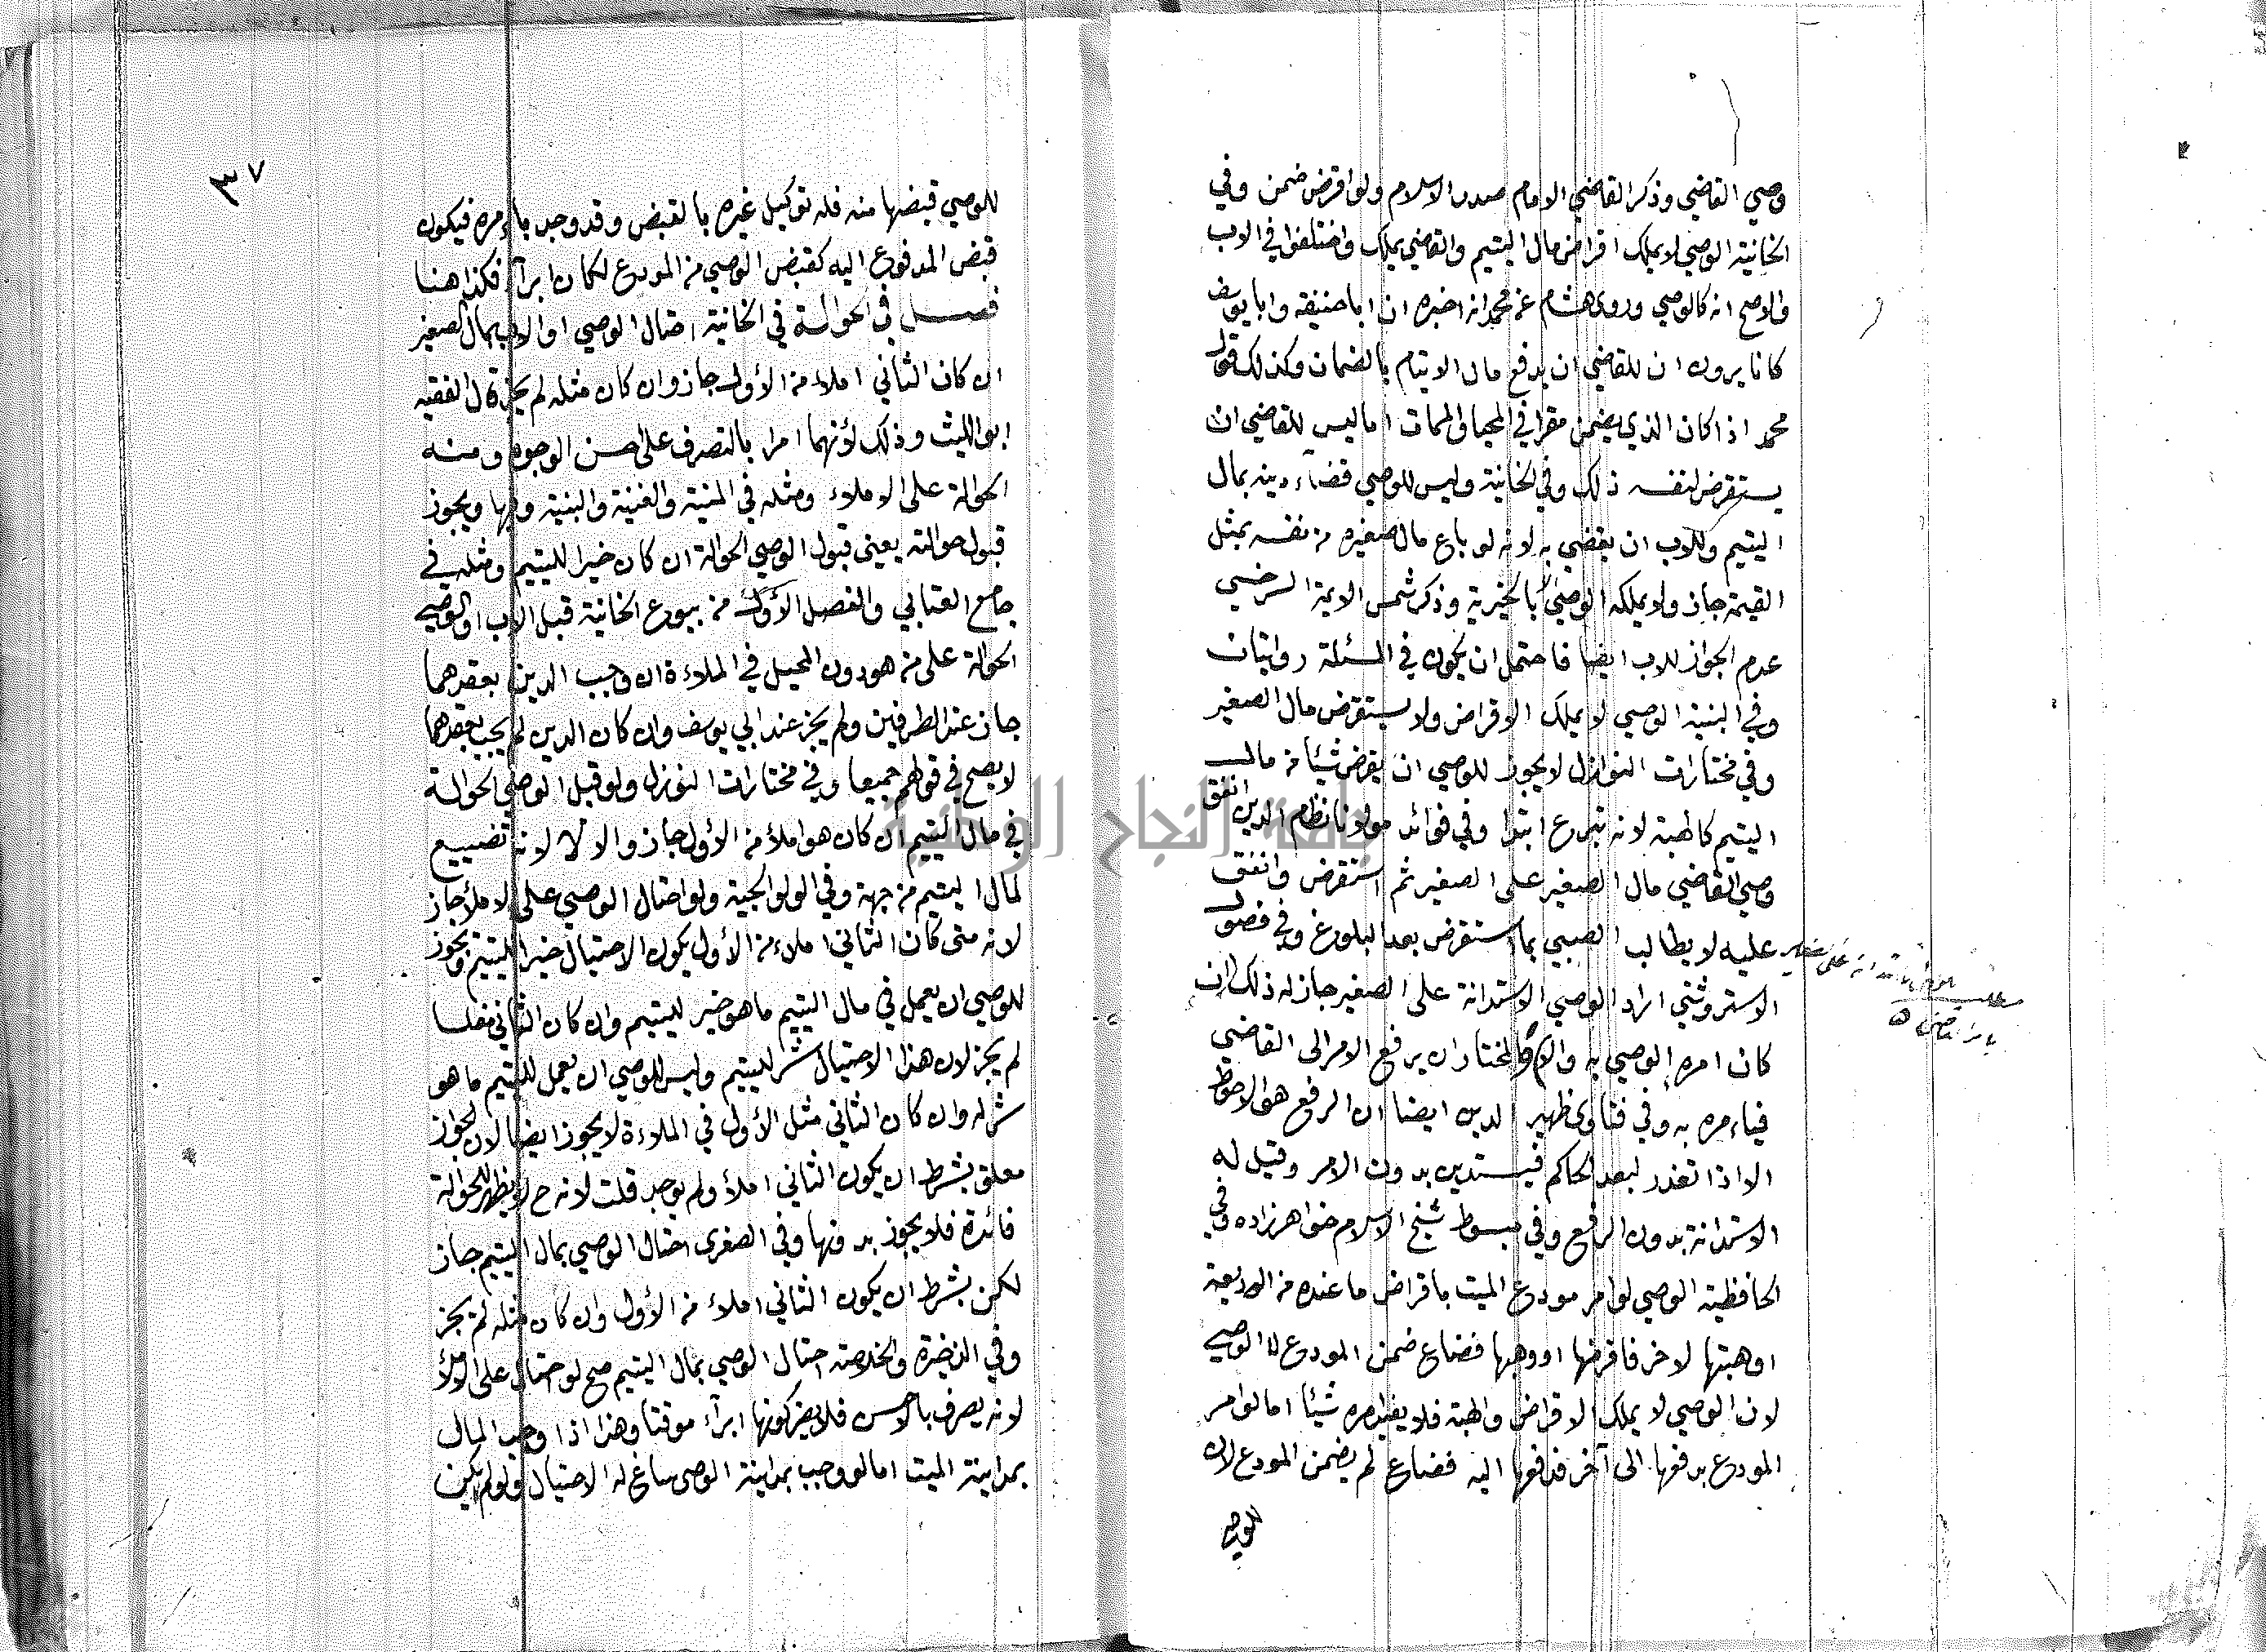 وصي القاضي وذكر القاضي الامام صدر الاسلام ولو اقرض ضمن وفي
الخانية الوصي لا يملك اقراض مال اليتيم والقاضي يملك واختلفوا في الاب
والاصح انه كالوصي وروى هشام عن محمد انه اخبره ان ابا حنيفة وابا يوسف
كانا يرون ان للقاضي ان يدفع مال الايتام بالضمان وكذلك قول
محمد اذا كان الذي يضمن مقرا في المحيا والممات اما ليس للقاضي ان
يستقرض لنفسه ذلك وفي الخانية وليس للوصي قضاء دينه بمال
اليتيم وللاب ان يقضي به لانه لو باع مال صغيره من نفسه بمثل
القيمة جاز ولا يملكه الوصي الا بالخيرية وذكر شمس الايمة السرخسي
عدم الجواز للاب ايضا فاحتمل ان يكون في المسئلة روايتان
وفي البنية الوصي لا يملك الاقراض ولا يستقرض مال الصغير
وفي مختارات النوازل لا يجوز للوصي ان يقرض شيئا من مال
اليتيم كالهبة لانه تبرع ابتدا وفي فوائد مولانا نظام الدين انفق
وصي القاضي مال الصغير على الصغير ثم استقرض وانفق
عليه لا يطالب الصبي بما استقرض بعد البلوغ وفي فصول
الاستروشني اراد الوصي الاستدانة على الصغير جاز له ذلك ان
كان امره الوصي به والا فالمختار ان يرفع الامر الى القاضي
فياءمره به وفي فتاوى ظهير الدين ايضا ان الرفع هو الاحوط
الا اذا تعذر لبعد الحاكم فيستدين بدون الامر وقيل له
الاستدانة بدون الرفع وفي مبسوط شيخ الاسلام خواهرزاده وفي
الحافظية الوصي لو امر مودع الميت باقراض ما عنده من الوديعة
او هبتها لاخر فاقرضها او وهبها فضاع ضمن المودع لا الوصي
لان الوصي لا يملك الاقراض والهبة فلا يفيد امره شيئا اما لو امر
المودع بدفعها الى آخر فدفعها اليه فضاع لم يضمن المودع لان
للوصي
٣٧
للوصي قبضها منه فله توكيل غيره بالقبض وقد وجد باءمره فيكون
قبض المدفوع اليه كقبض الوصي من المودع لكان ابرآء فكذا هنا
فصل في الحوالة في الخانية احتال الوصي او الاب بمال الصغير
ان كان الثاني املاء من الأول جاز وان كان مثله لم يجز قال الفقيه
ابو الليث وذلك لأنهما امرا بالتصرف على احسن الوجوه ومنه
الحوالة على الاملاء ومثله في المنية والغنية والبنية وفيها ويجوز
قبول حوالته يعني قبول الوصي الحوالة ان كان خيرا لليتيم ومثله في
جامع العتابي والفصل الأول من بيوع الخانية قبل الاب او الوصي
الحوالة على من هو دون المحيل في الملاءة ان وجب الدين بعقدهما
جاز عند الطرفين ولم يجز عند ابي يوسف وان كان الدين لم يجب بعقدهما
لا يصح في قولهم جميعا وفي مختارات النوزل ولو قبل الوصي الحوالة
في مال اليتيم ان كان هو املأ من الأول جاز والا لا لانه تضييع
لمال اليتيم من جهة وفي الولوالجية ولو احتال الوصي على الاملأ جاز
لانه متى كان الثاني املاء من الأول يكون الاحتيال خيرا لليتيم ويجوز
للوصي ان يعمل في مال اليتيم ما هو خير لليتيم وان كان الثاني مفلسا
لم يجز لان هذا الاحتيال شر لليتيم وليس للوصي ان يعمل لليتيم ما هو
شر له وان كان الثاني مثل الأول في الملاءة لا يجوز ايضا لان الجواز
معلق بشرط ان يكون الثاني املأ ولم يوجد قلت لانه ح لا يظهر للحوالة
فائدة فلا يجوز بدونها وفي الصغرى احتال الوصي بمال اليتيم جاز
لكن بشرط ان يكون الثاني املاء من الأول وان كان مثله لم يجز
وفي الذخيرة والخلاصة احتال الوصي بمال اليتيم صح لو احتال على املأ
لانه يصرف بالاحسن فلا يضر كونها ابرآء موقتا وهذا اذا وجب المال
بمداينة الميت اما لو وجب بمداينة الوصي ساغ له الاحتيال ولو لم يكن
جامعة النجاح الوطنية